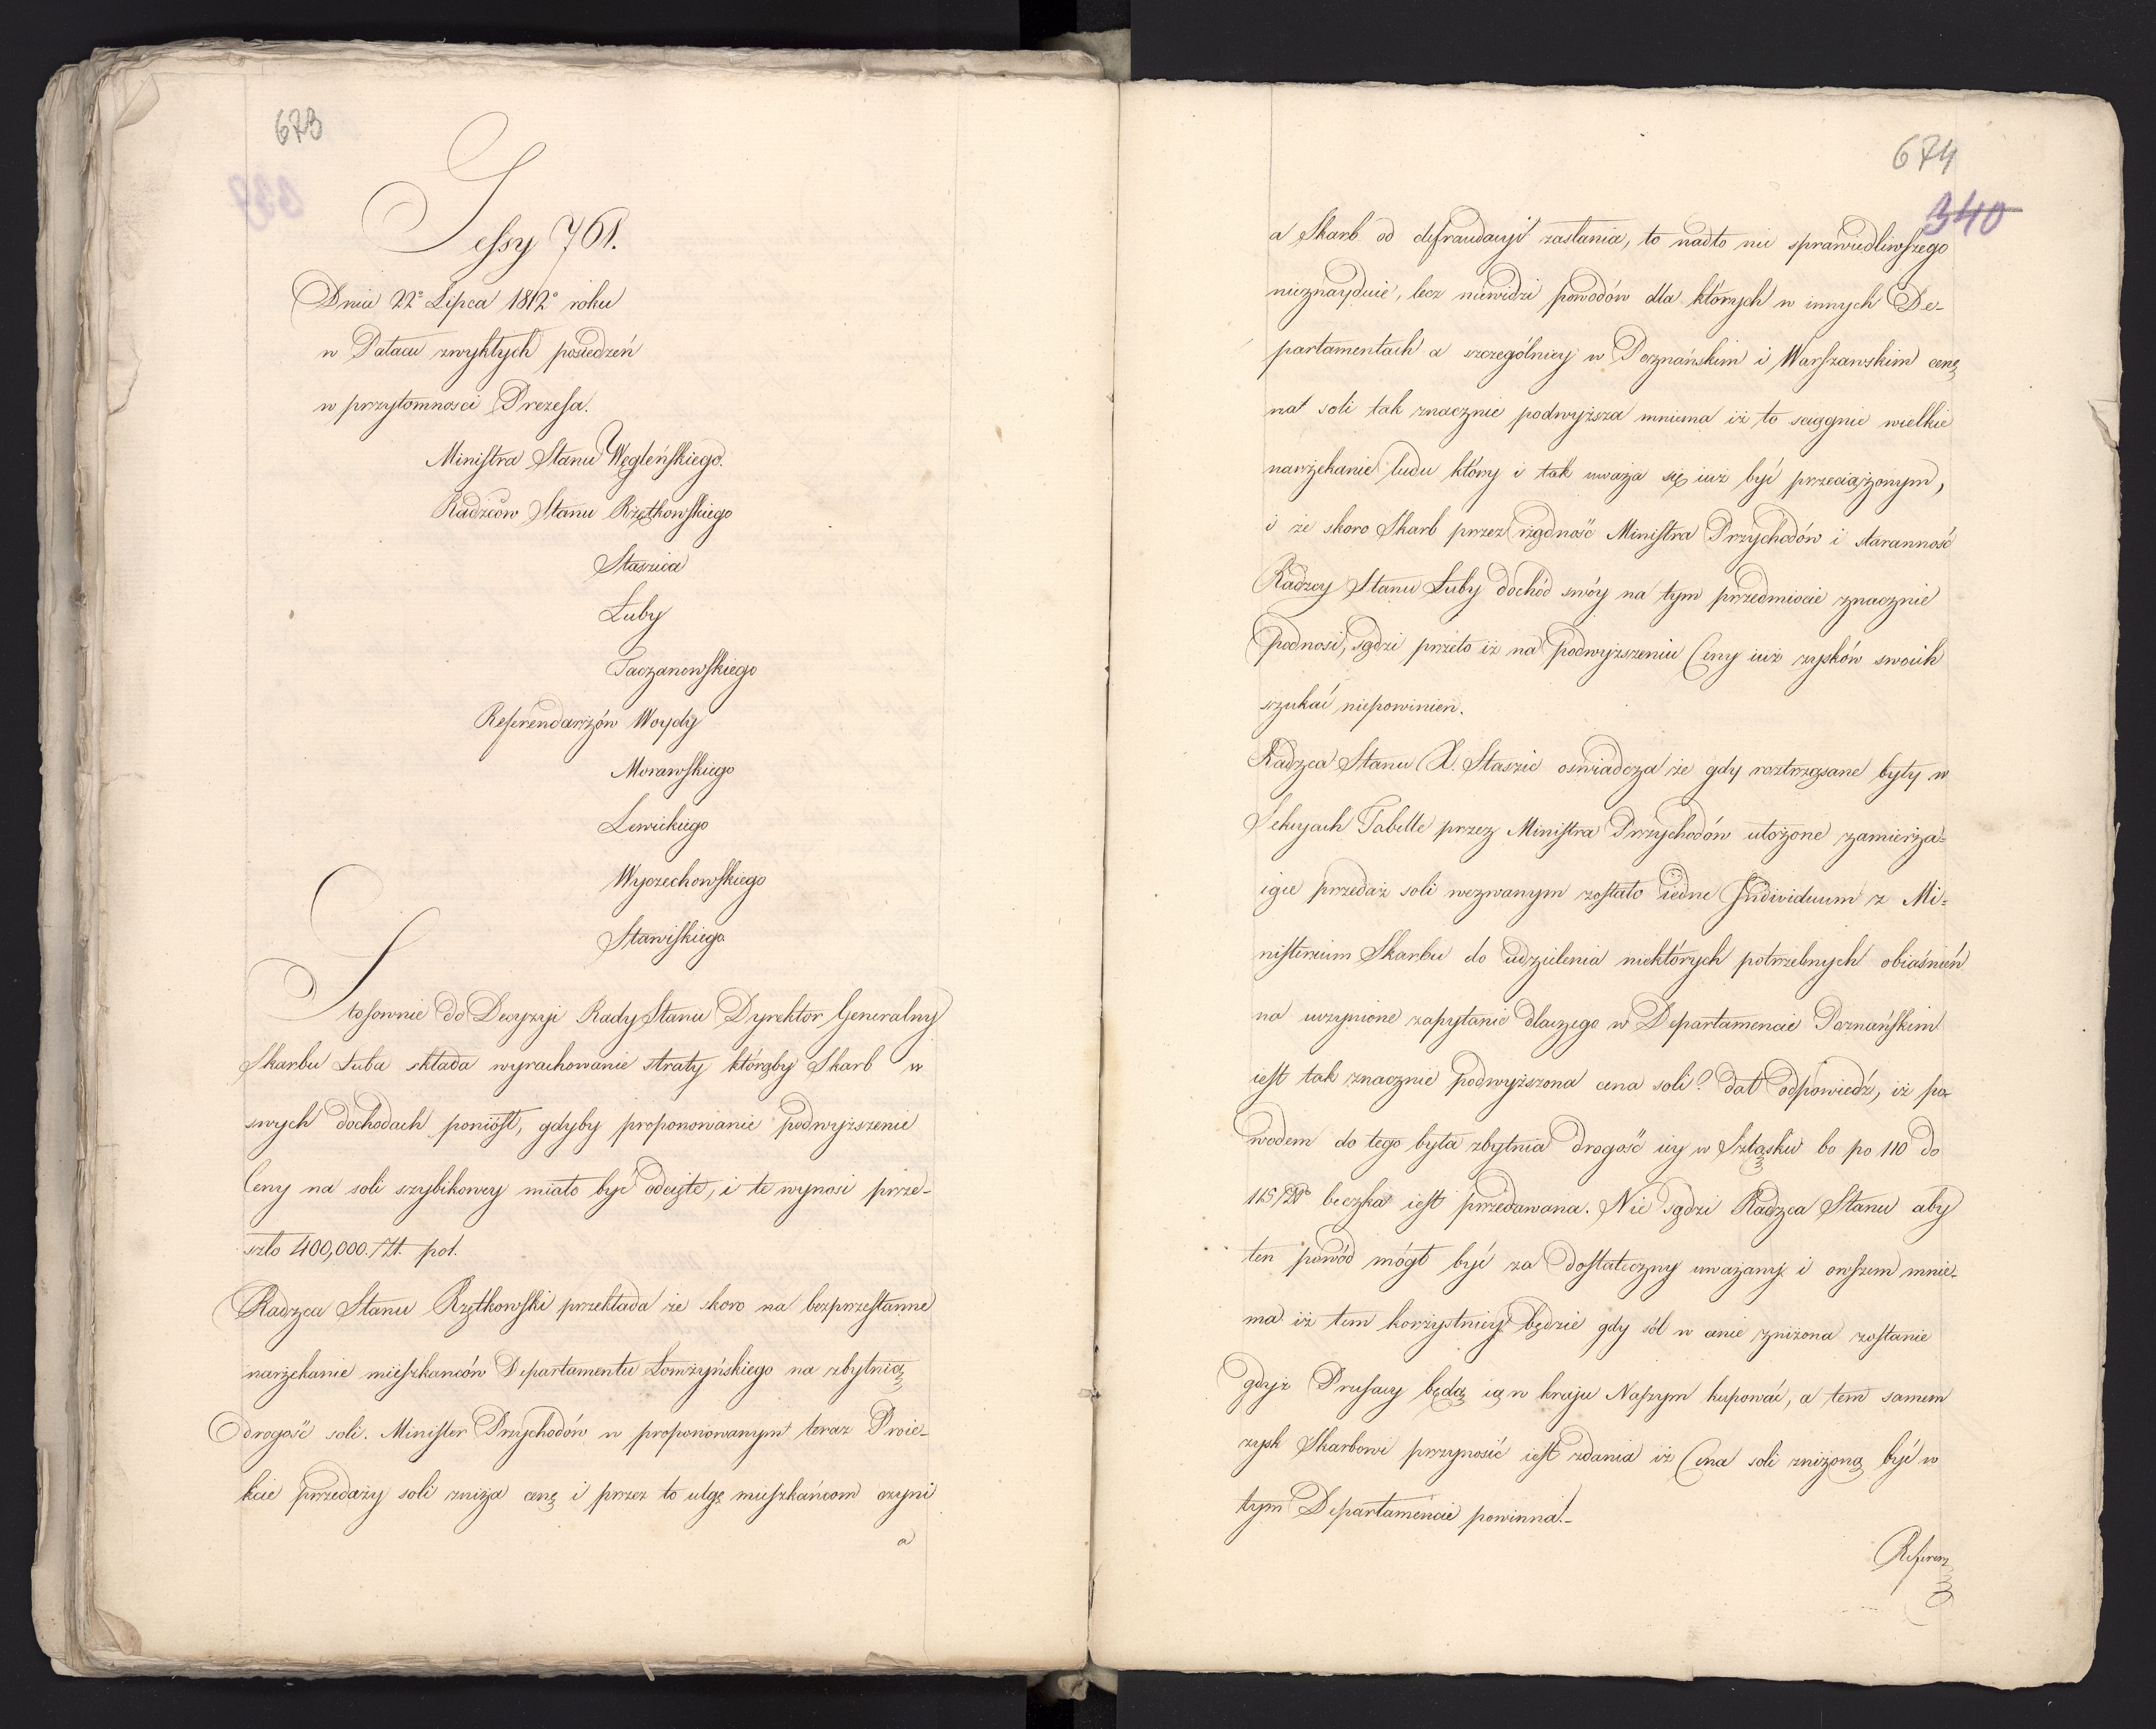 673
Sessy 761.
Dnia 22º Lipca 1812º roku
w Pałacu zwykłych posiedzeń
w przytomnosci Prezesa.
Ministra Stanu Węgleńskiego.
Radzców Stanu Rzętkowskiego
Staszica
Łuby
Taczanowskiego
Referendarzów Woydy
Morawskiego
Lewickiego
Wyczechowskiego
Stawiskiego
Stosownie do Decyzyi Rady Stanu Dyrektor Generalny
Skarbu Łuba składa wyrachowanie straty którąby Skarb w
swych dochodach poniósł, gdyby proponowanie podwyższenie
Ceny na soli szybikowey miało być odcięte, i te wynosi prze-
szło 400,000. Zł. pol.
Radzca Stanu Rzętkowski przekłada że skoro na bezprzestanne
narzekanie mieszkanców Departamentu Łomżyńskiego na zbytnią
drogość soli. Minister Przychodów w proponowanym teraz Proie-
kcie przedaży soli zniża cenę i przez to ulgę mieszkańcom czyni
a
674
340
a Skarb od defraudacyi zasłania, to nadto nic sprawiedliwszego
nieznayduie, lecz niewidzi powodów dla których w innych De-
partamentach a szczególniey w Poznańskim i Warszawskim cenę
na soli tak znacznie podwyższa mniema iż to sciągnie wielkie
narzekanie ludu który i tak uważa się iuż być przeciążonym,
i że skoro Skarb przez rządność Ministra Przychodów i staranność
Radzcy Stanu Łuby dochód swóy na tym przedmiocie znacznie
podnosi, sądzi przeto iż na podwyższeniu Ceny iuż zysków swoich
szukać niepowinien.
Radzca Stanu X. Staszic oswiadcza że gdy roztrząsane były w
Sekcyach Tabelle przez Ministra Przychodów ułożone zamierza-
iące przedaż soli wezwanym zostało iedne Individuum z Mi-
nisterium Skarbu do udzielenia niektórych potrzebnych obiaśnień
na uczynione zapytanie dlaczego w Departamencie Poznańskim
iest tak znacznie podwyższona cena soli? dał odpowiedź, iż po-
wodem do tego była zbytnia drogość iey w Szląsku bo po 110 do
115 beczka iest przedawana. Nie sądzi Radzca Stanu aby
ten powód mógł być za dostateczny uważany i owszem mnie-
ma iż tem korzystniey będzie gdy sól w cenie zniżona zostanie
gdyż Prusacy będą ią w kraju Naszym kupować, a tem samem
zysk Skarbowi przynosić iest zdania iż Cena soli zniżoną być w
tym Departamencie powinna.-
Referen